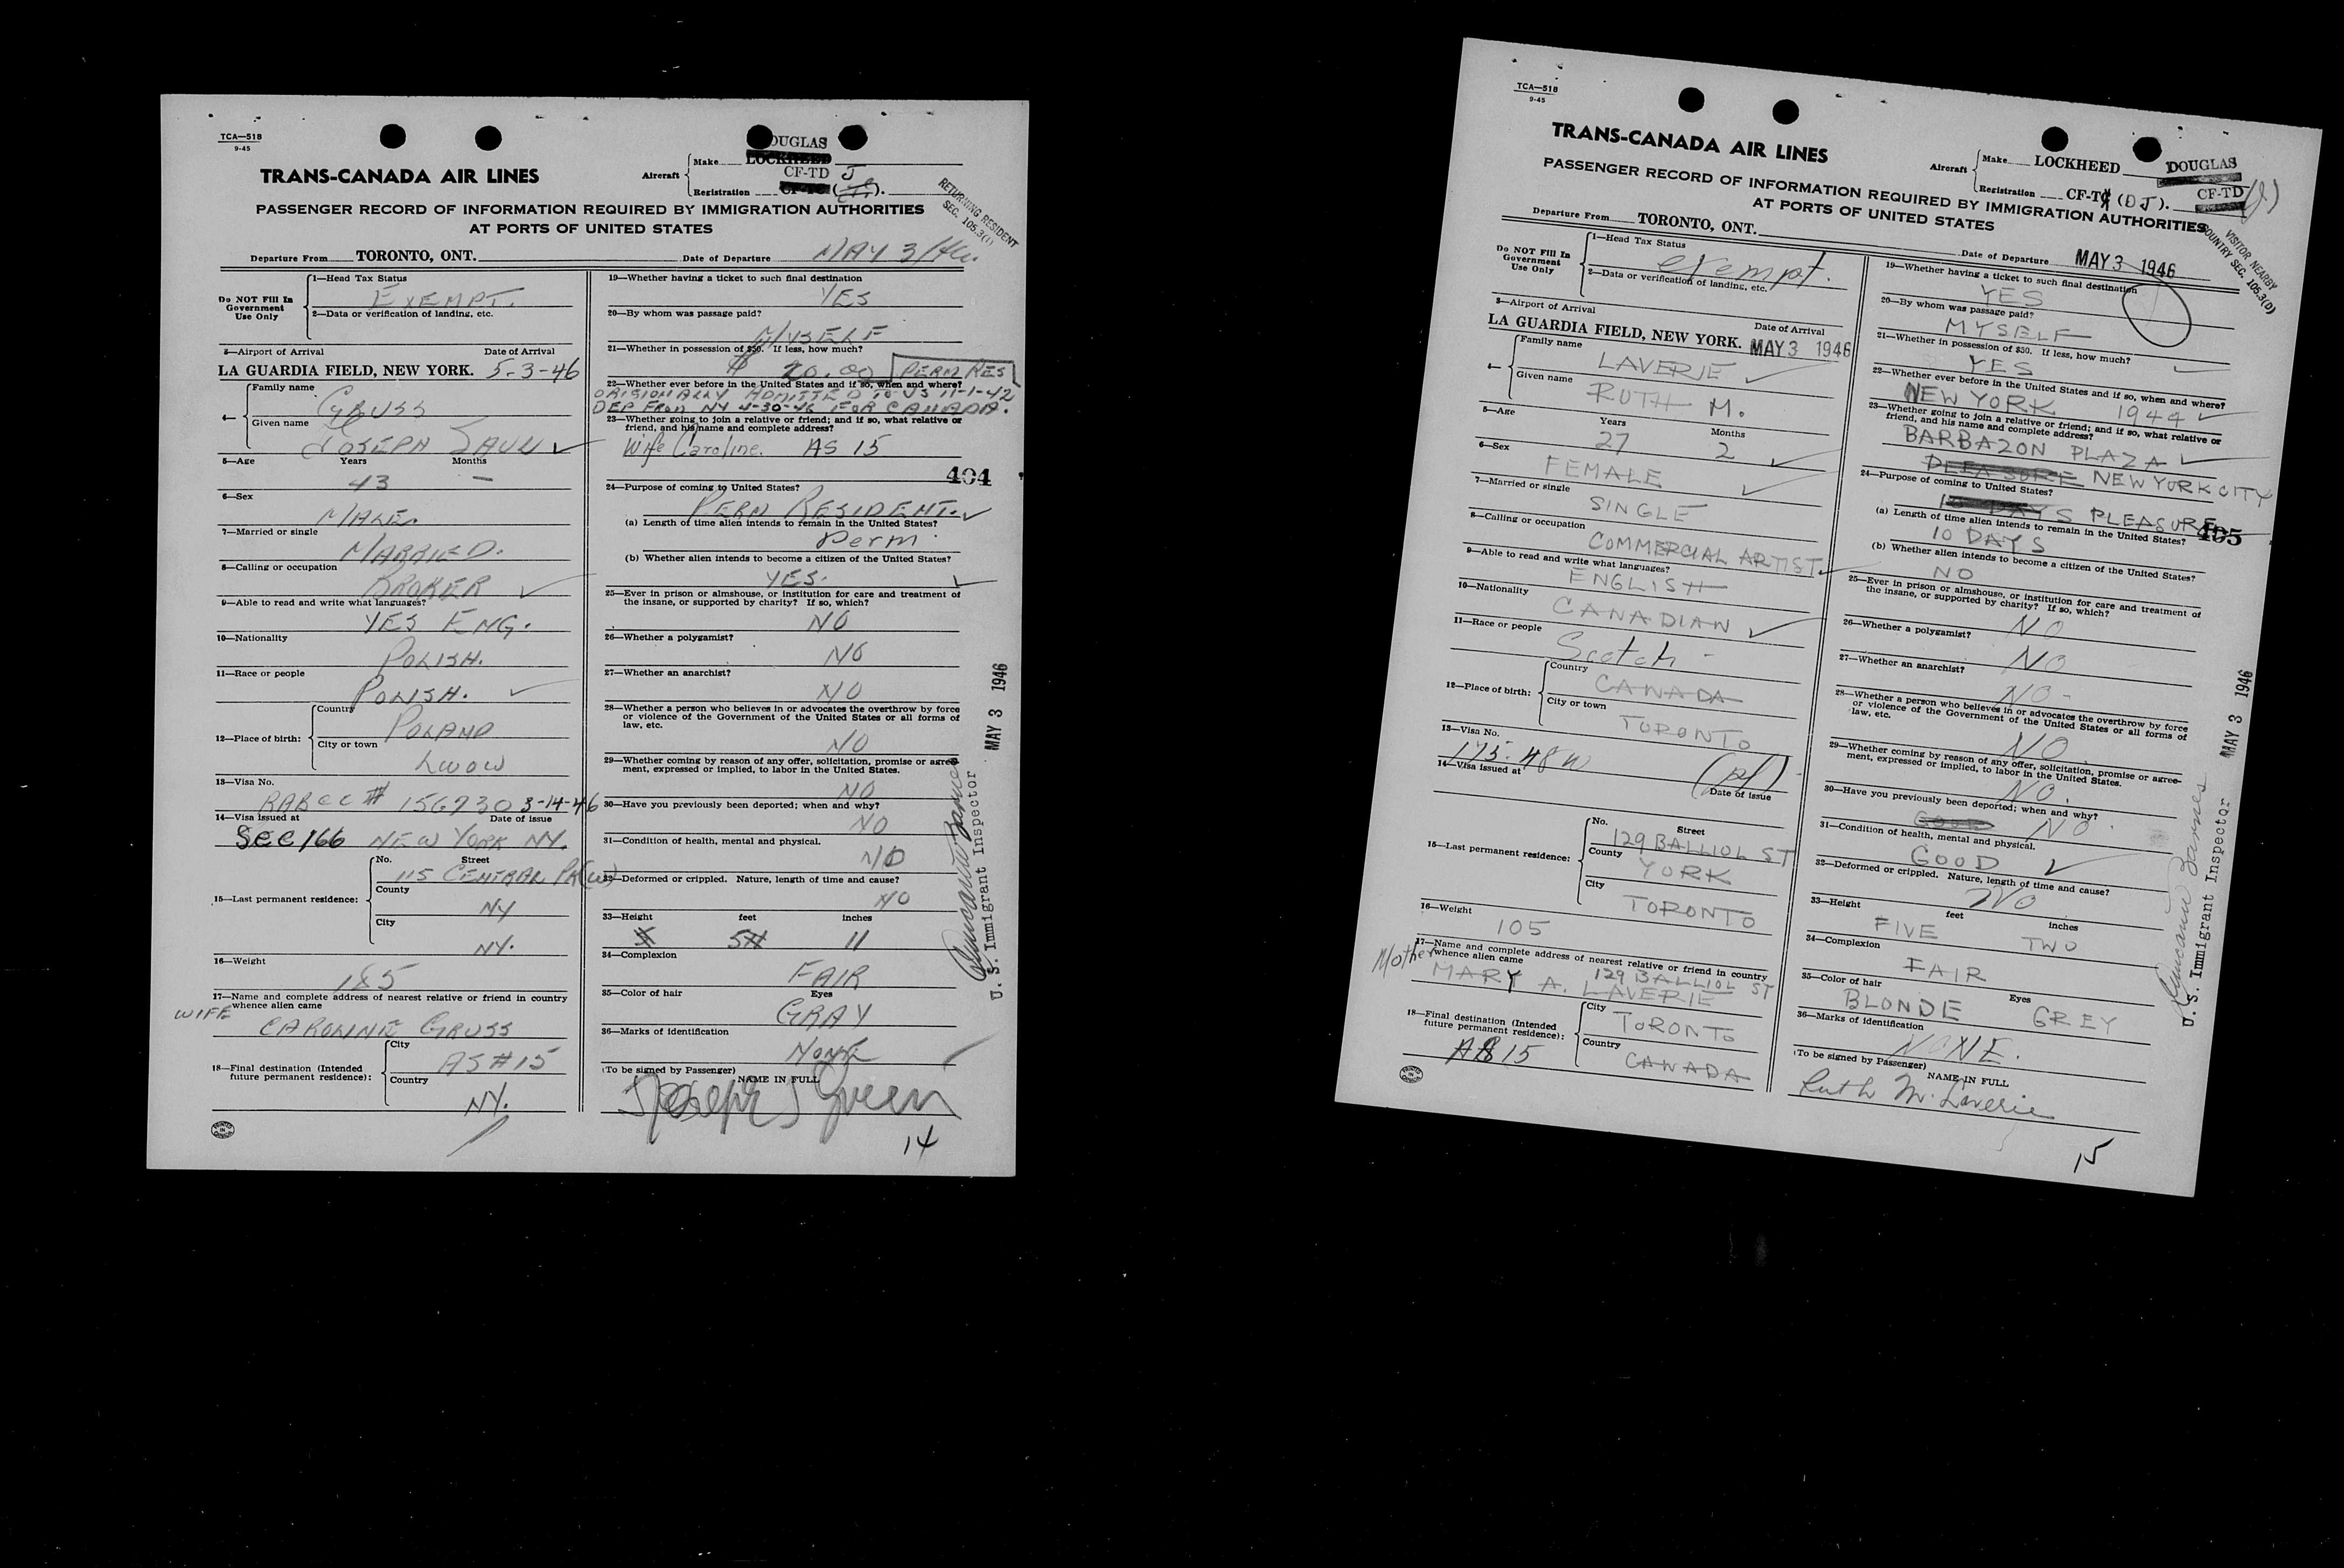 TCA—518
9-45
DOUGLAS
Make LOCKHEED
CF-TD J
Aircraft
Registration
TRANS-CANADA AIR LINES
PASSENGER RECORD OF INFORMATION REQUIRED BY IMMIGRATION AUTHORITIES
AT PORTS OF UNITED STATES
RETURNING RESIDENT
SEC. 105.3(1)
Departure From TORONTO, ONT. Date of Departure MAY 3/46.
Do NOT Fill In
Government
Use Only
1—Head Tax Status
EXEMPT.
2—Data or verification of landing, etc.
3—Airport of Arrival Date of Arrival
LA GUARDIA FIELD, NEW YORK. 5-3-46
4—
Family name
GRUSS
Given name
JOSEPH SAUL
5—Age Years Months
43 —
6—Sex
MALE.
7—Married or single
MARRIED.
8—Calling or occupation
BROKER
9—Able to read and write what languages?
YES ENG.
10—Nationality
POLISH.
11—Race or people
POLISH.
12—Place of birth:
Country
POLAND
City or town
LWOW
13—Visa No.
RABCC # 156730 3-14-46
14—Visa issued at Date of issue
SEC 166 NEW YORK NY.
15—Last permanent residence:
No. Street
115 CENTRAL PK(W)
County
NY
City
NY.
16—Weight
185
17—Name and complete address of nearest relative or friend in country
whence alien came
WIFE
CAROLINE GRUSS
18—Final destination (Intended
future permanent residence):
City
AS # 15
Country
NY.
19—Whether having a ticket to such final destination
YES
20—By whom was passage paid?
MYSELF
21—Whether in possession of $50. If less, how much?
$ 20.00 PERM RES
22—Whether ever before in the United States and if so, when and where?
ORIGIONALLY ADMITTED TO US 11-1-42
DEP FROM NY 4-30-46 FOR CANADA.
23—Whether going to join a relative or friend; and if so, what relative or
friend, and his name and complete address?
Wife Caroline. AS 15
404
24—Purpose of coming to United States?
PERM RESIDENT.
(a) Length of time alien intends to remain in the United States?
Perm.
(b) Whether alien intends to become a citizen of the United States?
YES.
25—Ever in prison or almshouse, or institution for care and treatment of
the insane, or supported by charity? If so, which?
NO
26—Whether a polygamist?
NO
27—Whether an anarchist?
NO
28—Whether a person who believes in or advocates the overthrow by force
or violence of the Government of the United States or all forms of
law, etc.
NO
29—Whether coming by reason of any offer, solicitation, promise or agree-
ment, expressed or implied, to labor in the United States.
NO
30—Have you previously been deported; when and why?
NO
31—Condition of health, mental and physical.
NO
32—Deformed or crippled. Nature, length of time and cause?
NO
33—Height feet inches
5 11
34—Complexion
FAIR
35—Color of hair Eyes
GRAY
36—Marks of identification
NONE
(To be signed by Passenger)
NAME IN FULL
Joseph S Green
14
MAY 3 1946
U. S. Immigrant Inspector
TCA—518
9-45
TRANS-CANADA AIR LINES
Aircraft
Make LOCKHEED DOUGLAS
Registration CF-T (DJ). CF-TD (J)
PASSENGER RECORD OF INFORMATION REQUIRED BY IMMIGRATION AUTHORITIES
AT PORTS OF UNITED STATES
VISITOR NEARBY
COUNTRY SEC. 105.3(D)
Departure From TORONTO, ONT. Date of Departure MAY 3 1946
Do NOT Fill In
Government
Use Only
1—Head Tax Status
exempt.
2—Data or verification of landing, etc.
3—Airport of Arrival Date of Arrival
LA GUARDIA FIELD, NEW YORK. MAY 3 1946
4—
Family name
LAVERIE
Given name
RUTH M.
5—Age Years Months
27 2
6—Sex
FEMALE
7—Married or single
SINGLE
8—Calling or occupation
COMMERCIAL ARTIST
9—Able to read and write what languages?
ENGLISH
10—Nationality
CANADIAN
11—Race or people
Scotch -
12—Place of birth:
Country
CANADA
City or town
TORONTO
13—Visa No.
175.48W
14—Visa issued at Date of issue
15—Last permanent residence:
No. Street
129 BALLIOL ST
County
YORK
City
TORONTO
16—Weight
105
17—Name and complete address of nearest relative or friend in country
whence alien came
Mother
129 BALLIOL ST
MARY A. LAVERIE
18—Final destination (Intended
future permanent residence):
AS 15
City
TORONTO
Country
CANADA
19—Whether having a ticket to such final destination
YES
20—By whom was passage paid?
MYSELF
21—Whether in possession of $50. If less, how much?
YES
22—Whether ever before in the United States and if so, when and where?
NEW YORK 1944
23—Whether going to join a relative or friend; and if so, what relative or
friend, and his name and complete address?
BARBAZON PLAZA
PLEASURE NEW YORK CITY
24—Purpose of coming to United States?
10 DAYS PLEASURE
405
(a) Length of time alien intends to remain in the United States?
10 DAYS
(b) Whether alien intends to become a citizen of the United States?
NO
25—Ever in prison or almshouse, or institution for care and treatment of
the insane, or supported by charity? If so, which?
NO
26—Whether a polygamist?
NO
27—Whether an anarchist?
NO -
28—Whether a person who believes in or advocates the overthrow by force
or violence of the Government of the United States or all forms of
law, etc.
NO
29—Whether coming by reason of any offer, solicitation, promise or agree-
ment, expressed or implied, to labor in the United States.
NO.
30—Have you previously been deported; when and why?
GOOD NO.
31—Condition of health, mental and physical.
GOOD
32—Deformed or crippled. Nature, length of time and cause?
NO
33—Height feet inches
FIVE TWO
34—Complexion
FAIR
35—Color of hair Eyes
BLONDE GREY
36—Marks of identification
NONE.
(To be signed by Passenger)
NAME IN FULL
Ruth M. Laverie
15
MAY 3 1946
U. S. Immigrant Inspector